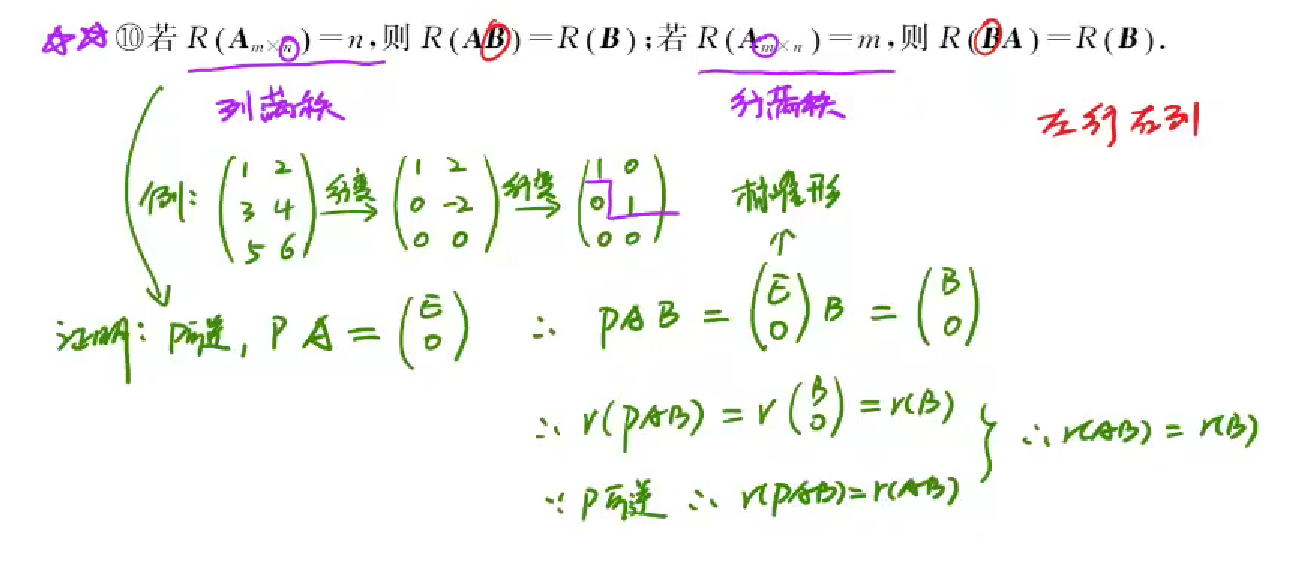 ☆☆ ⑩若 R(A_{m×n})=n,则 R(AB)=R(B);若 R(A_{m×n})=m,则 R(BA)=R(B).
列满秩 行满秩
左行右列
例: (1 2; 3 4; 5 6) 行变→ (1 2; 0 -2; 0 0) 行变→ (1 0; 0 1; 0 0) 标准形
↑
证明: P可逆, PA = (E; 0) ∴ PAB = (E; 0) B = (B; 0)
∴ r(PAB) = r(B; 0) = r(B)
∴ r(AB) = r(B)
∵ P可逆 ∴ r(PAB)=r(AB)